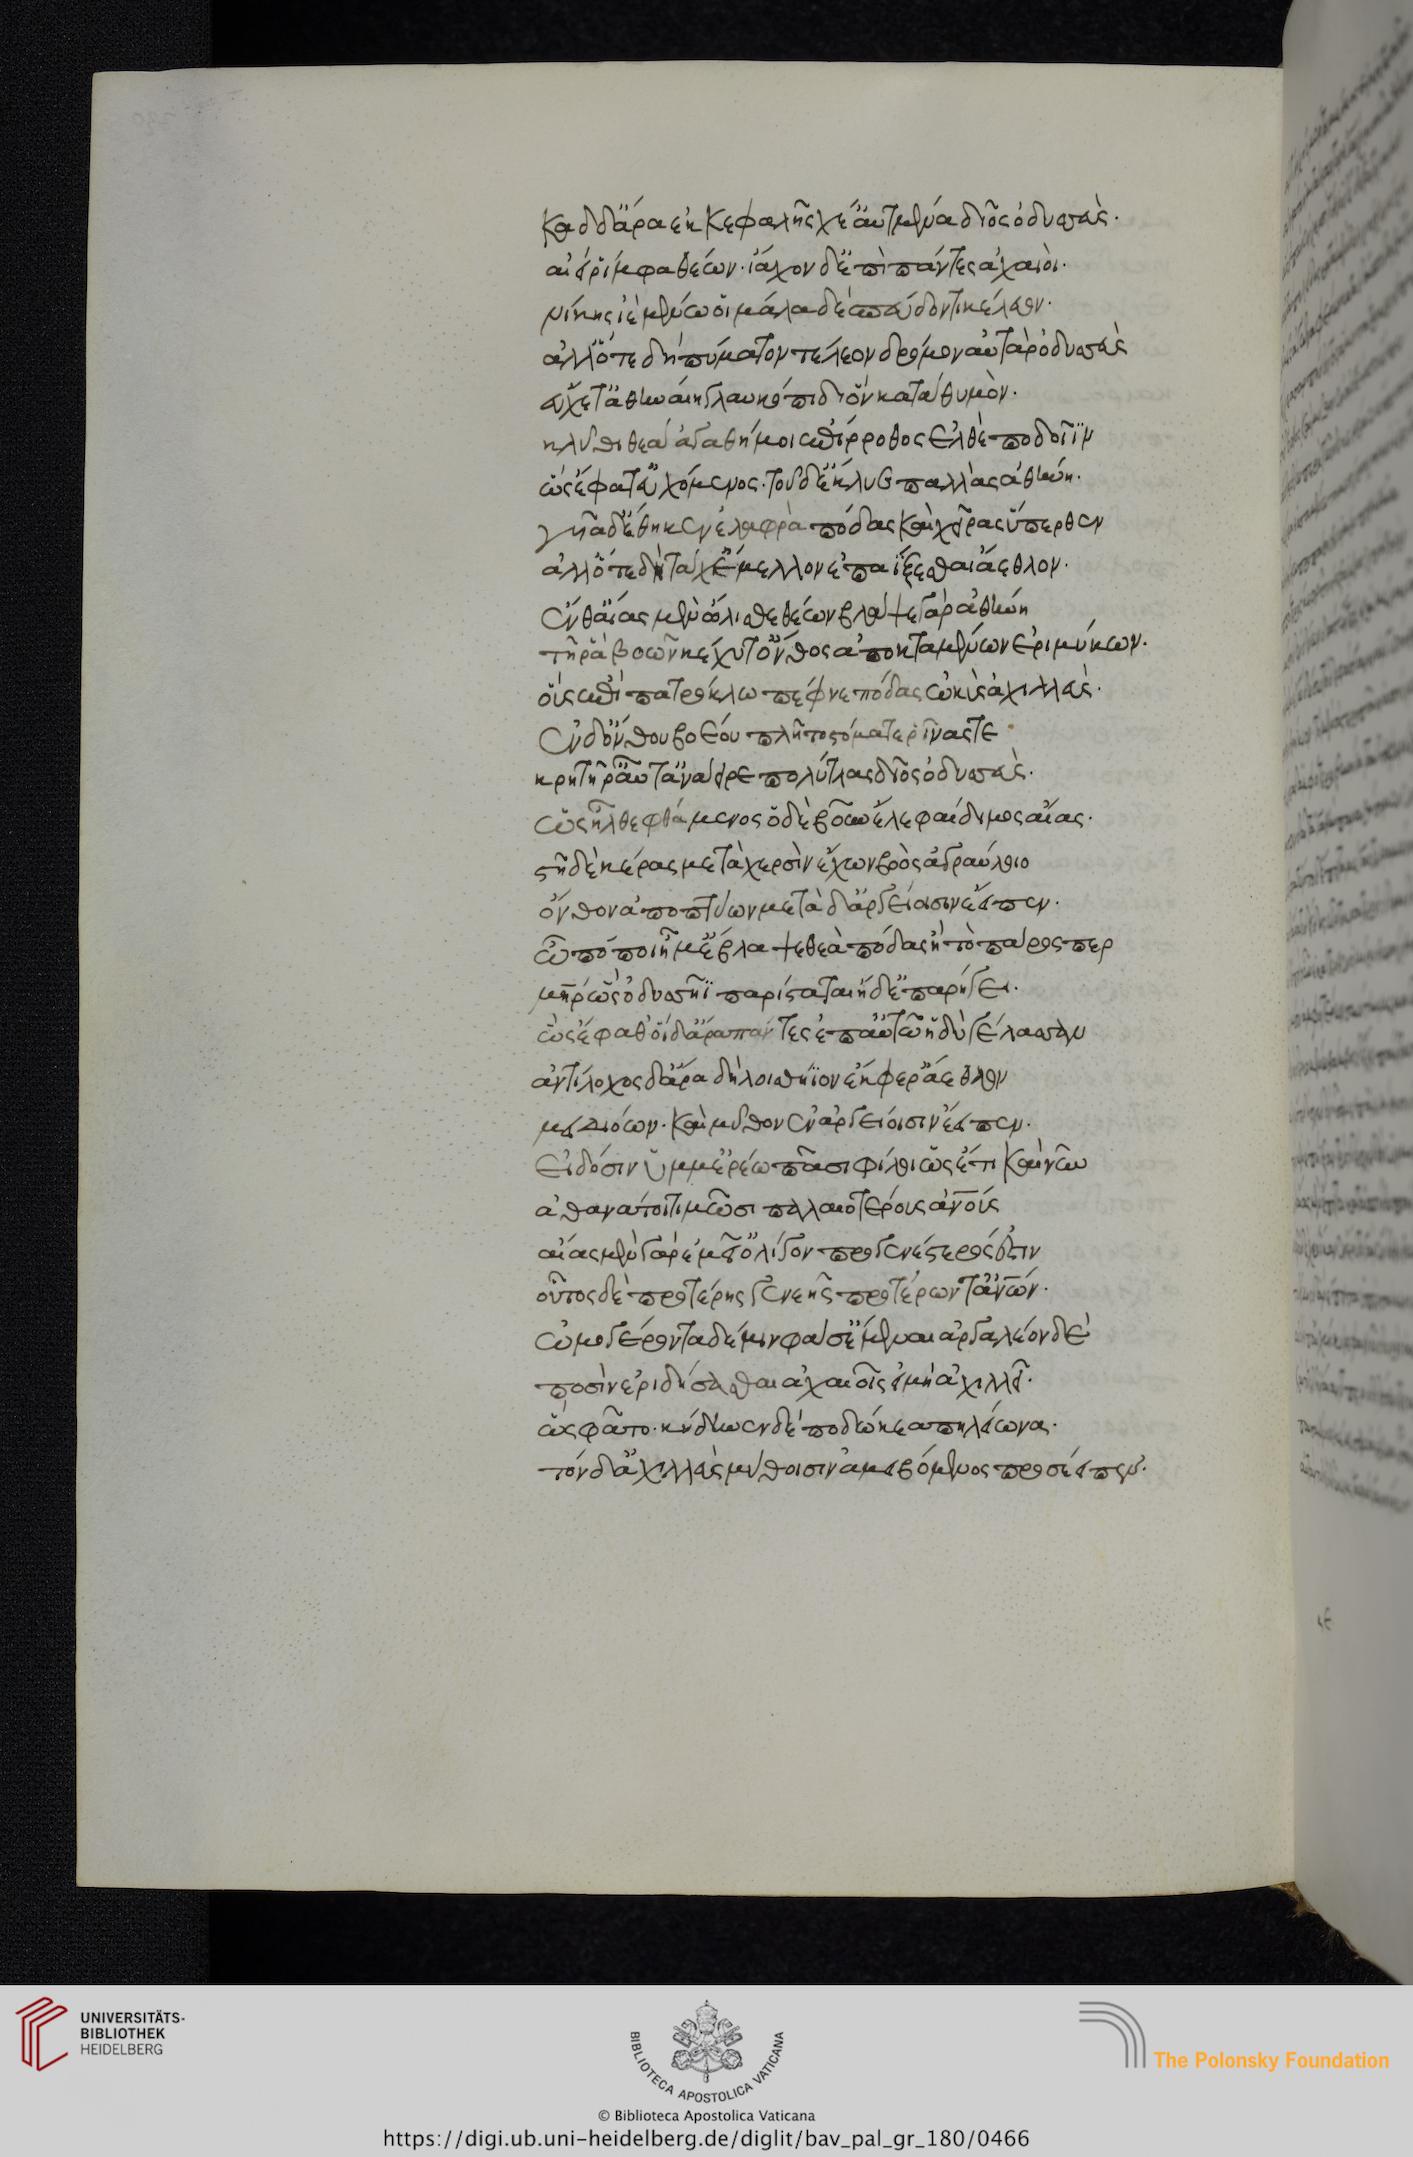 κὰδ δ' ἄρα ἐκ κεφαλῆς χέ' ἀϋτμένα δῖος ὀδυσσεὺς.
αἰεὶ ῥίμφα θέων. ἴαχον δ' ἐπὶ πάντες ἀχαιοὶ.
νίκης ἱεμένω οἱ μάλα δὲ σπεύδοντι κέλευον.
ἀλλ' ὅτε δὴ πύματον τέλεον δρόμον αὐτὰρ ὀδυσσεὺς
εὔχετ' ἀθηναίη γλαυκώπιδι ὃν κατὰ θυμὸν.
κλῦθι θεὰ ἀγαθή μοι ἐπίρροθος ἐλθὲ ποδοῖϊν
ὣς ἔφατ' εὐχόμενος. τοῦ δ' ἔκλυε παλλὰς ἀθήνη.
γυῖα δ' ἔθηκεν ἐλαφρὰ πόδας καὶ χεῖρας ὕπερθεν
ἀλλ' ὅτε δὴ τάχ' ἔμελλον ἐπαΐξεσθαι ἄεθλον.
ἔνθ' αἴας μὲν ὄλισθε θέων βλάψε γὰρ ἀθήνη
τῇ ῥα βοῶν κέχυτ' ὄνθος ἀποκταμένων ἐριμύκων.
οὓς ἐπὶ πατρόκλω πέφνε πόδας ὠκὺς ἀχιλλεὺς.
ἐν δ' ὄνθου βοέου πλῆτο στόμα τε ῥῖνάς τε
κρητῆρ' αὖτ' ἀνάειρε πολύτλας δῖος ὀδυσσεὺς.
ὡς ἦλθε φθάμενος ὁ δὲ βοῦν ἕλε φαίδιμος αἴας.
στῆ δὲ κέρας μετὰ χερσὶν ἔχων βοὸς ἀγραύλοιο
ὄνθον ἀποπτύων μετὰ δ' ἀργείοισιν ἔειπεν.
ὢ πόποι ἦ μ' ἔβλαψε θεὰ πόδας ἣ τὸ πάρος περ
μήτηρ ὣς ὀδυσῆϊ παρίσταται ἠδ' ἐπαρήγει.
ὣς ἔφαθ' οἱ δ' ἄρα πάντες ἐπ' αὐτῶ ἡδὺ γέλασσαν
ἀντίλοχος δ' ἄρα δὴ λοισθήϊον ἔκφερ' ἄεθλον
μειδιόων. καὶ μῦθον ἐν ἀργείοισιν ἔειπεν.
εἰδόσιν ὔμμ' ἐρέω πᾶσι φίλοι ὡς ἔτι καὶ νῦν
ἀθάνατοι τιμῶσι παλαιοτέρους ἀνους
αἴας μὲν γὰρ ἐμεῖ' ὀλίγον προγενέστερός ἐστιν
οὗτος δὲ προτέρης γενεῆς προτέρων τ' ἀνων.
ὠμογέροντα δέ μιν φάσ' ἔμμεναι ἀργαλέον δὲ
ποσὶν ἐριδήσασθαι ἀχαιοῖς εἰ μὴ ἀχιλλεῖ.
ὣς φάτο. κύδηνεν δὲ ποδώκεα πηλείωνα.
τὸν δ' ἀχιλλεὺς μύθοισιν ἀμειβόμενος προσέειπεν.
UNIVERSITÄTS-
BIBLIOTHEK
HEIDELBERG
BIBLIOTECA APOSTOLICA VATICANA
The Polonsky Foundation
© Biblioteca Apostolica Vaticana
https://digi.ub.uni-heidelberg.de/diglit/bav_pal_gr_180/0466